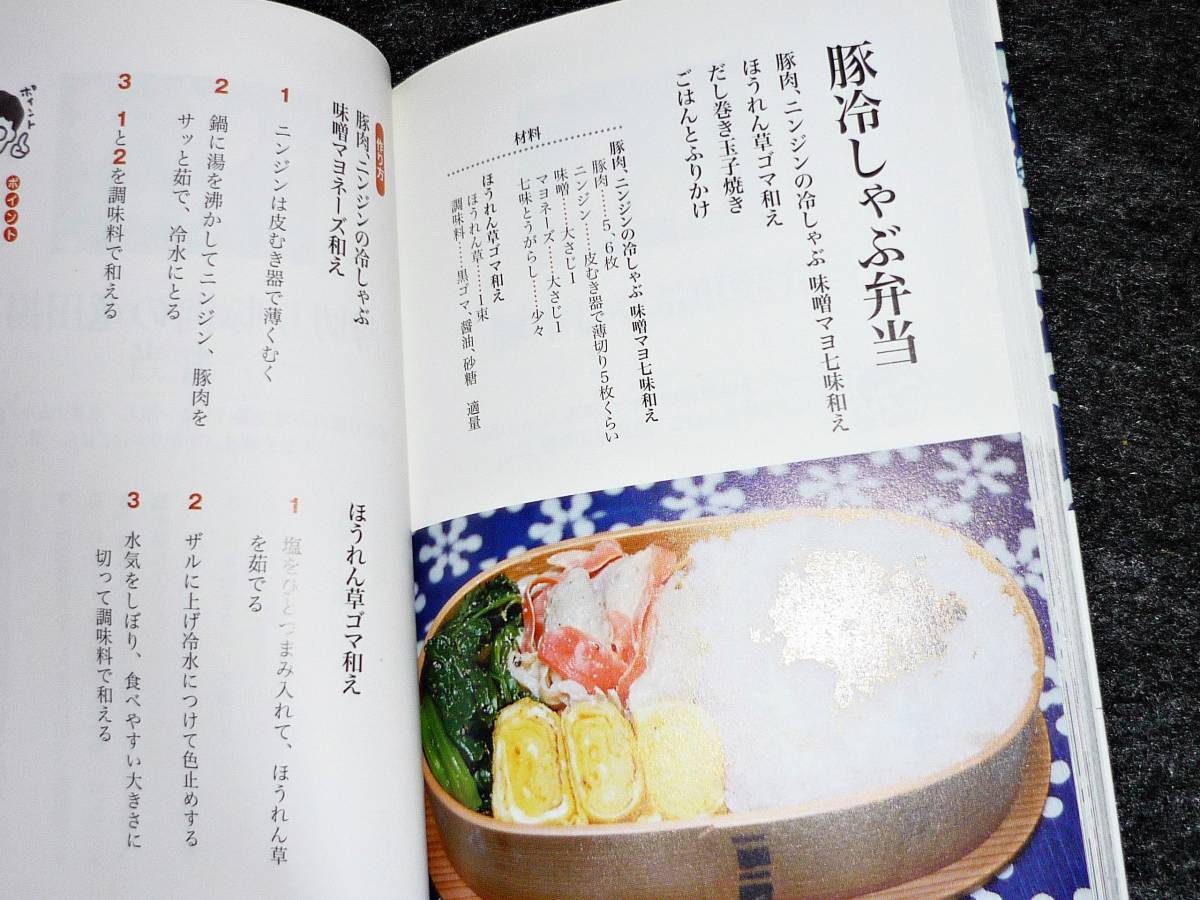 豚冷しゃぶ弁当
豚肉、ニンジンの冷しゃぶ 味噌マヨ七味和え
ほうれん草ゴマ和え
だし巻き玉子焼き
ごはんとふりかけ
材料
豚肉、ニンジンの冷しゃぶ 味噌マヨ七味和え
豚肉……5、6枚
ニンジン……皮むき器で薄切り5枚くらい
味噌……大さじ1
マヨネーズ……大さじ1
七味とうがらし……少々
ほうれん草ゴマ和え
ほうれん草……1束
調味料……黒ゴマ、醤油、砂糖 適量
作り方
豚肉、ニンジンの冷しゃぶ
味噌マヨネーズ和え
1 ニンジンは皮むき器で薄くむく
2 鍋に湯を沸かしてニンジン、豚肉を
サッと茹で、冷水にとる
3 1と2を調味料で和える
ほうれん草ゴマ和え
1 塩をひとつまみ入れて、ほうれん草
を茹でる
2 ザルに上げ冷水につけて色止めする
3 水気をしぼり、食べやすい大きさに
切って調味料で和える
ポイント
ポイント